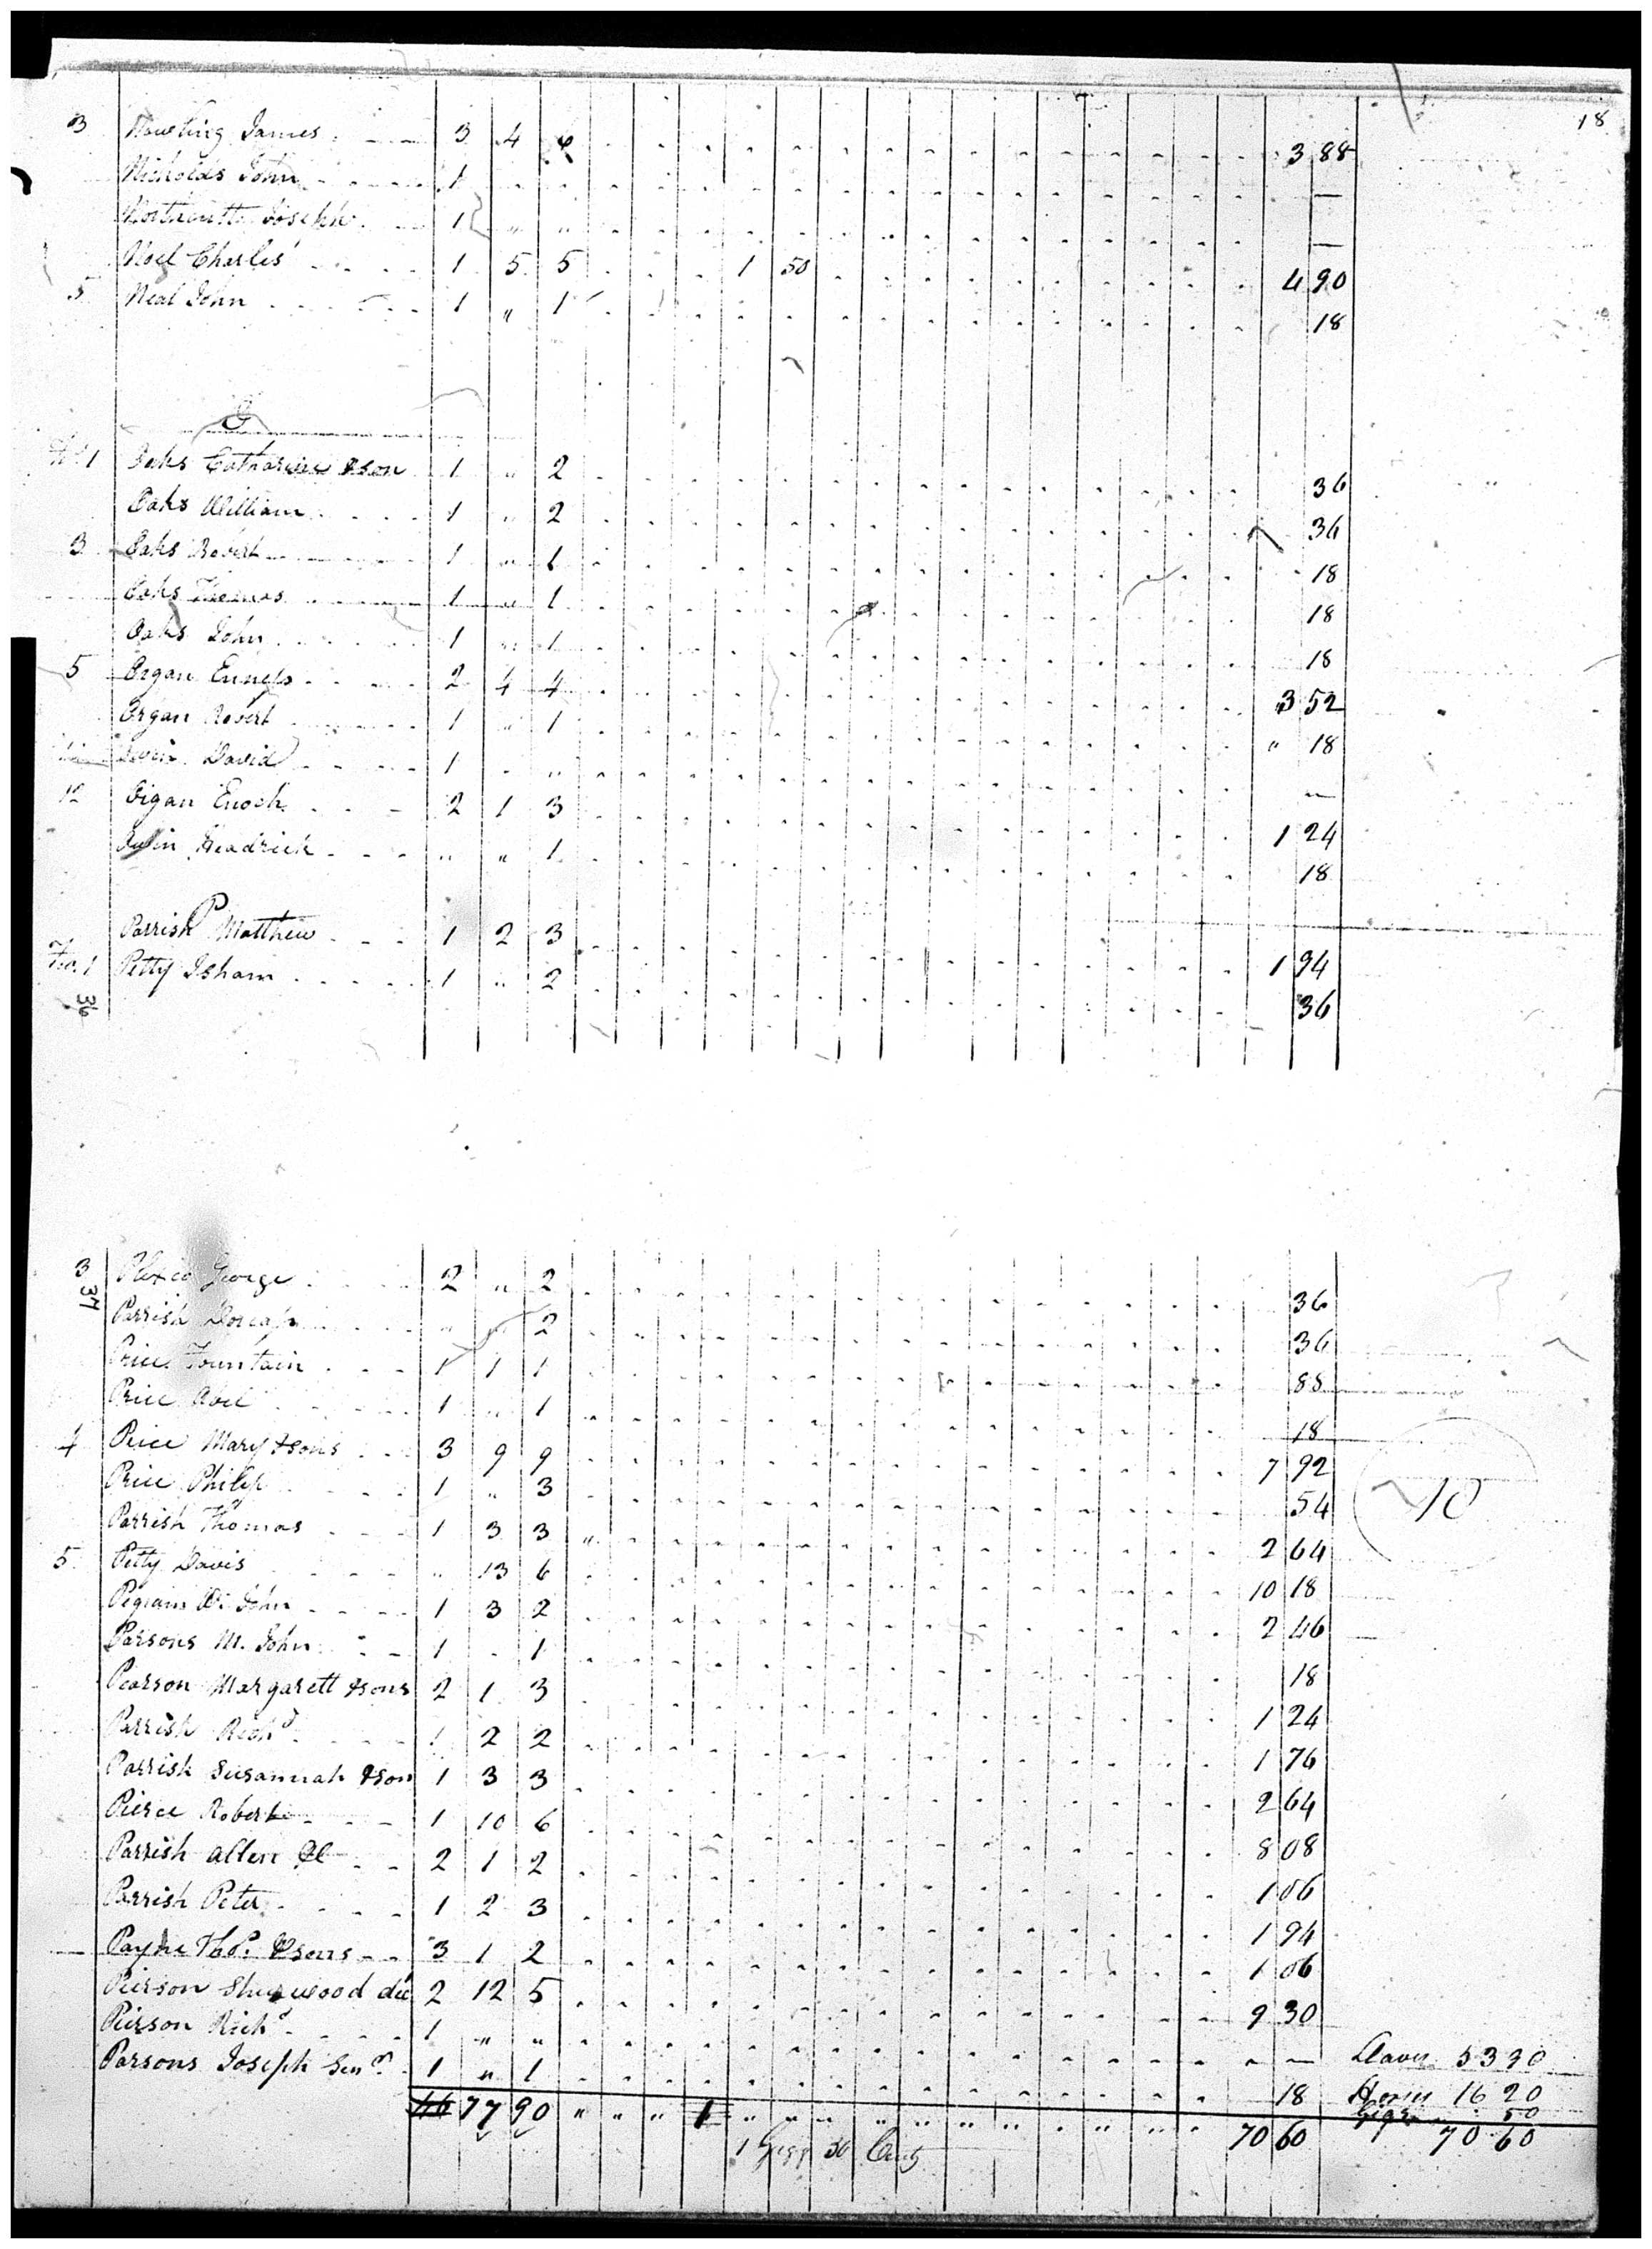 18
3 Nowling James 3 4 6 3 88
Nicholds John 1 —
Northcutt Joseph 1 " " —
Noel Charles 1 5 5 1 50 4 90
5 Neal John 1 " 1 18
O
No. 1 Oaks Catharine & son 1 " 2 36
Oaks William 1 " 2 36
3 Oaks Robert 1 " 1 18
Oaks Thomas 1 " 1 18
Oaks John 1 " 1 18
5 Organ Ennels 2 4 4 3 52
Organ Robert 1 " 1 " 18
David 1 " —
12 Enoch 2 1 3 1 24
Headrick " " 1 18
P
Parrish Matthew 1 2 3 1 94
No. 1 Petty Isham 1 " 2 36
36
3 George 2 " 2 36
37
Parrish " " 2 36
Price Fountain 1 1 1 88
Price 1 " 1 18
4 Price Mary & sons 3 9 9 7 92
Price Philip 1 " 3 54
Parrish Thomas 1 3 3 " 2 64
5 Petty Davis " 13 6 10 18
Pegram John 1 3 2 2 46
Parsons M. John 1 1 18
Pearson Margarett & sons 2 1 3 1 24
Parrish Richd 1 2 2 1 76
Parrish Susannah & son 1 3 3 2 64
Pierce Robert 1 10 6 8 08
Parrish Allen 2 1 2 1 06
Parrish Peter 1 2 3 1 94
Payne Thos. & sons 3 1 2 1 06
Pierson Sherwood 2 12 5 9 30
Pierson Richd 1 " " —
Parsons Joseph Senr 1 " 1 18
46 77 90 " " " 1 " " " " " " " " " " 70 60
1 Gigg 50 Cents
10
Slaves 53 90
Horses 16 20
Gigs 50
70 60